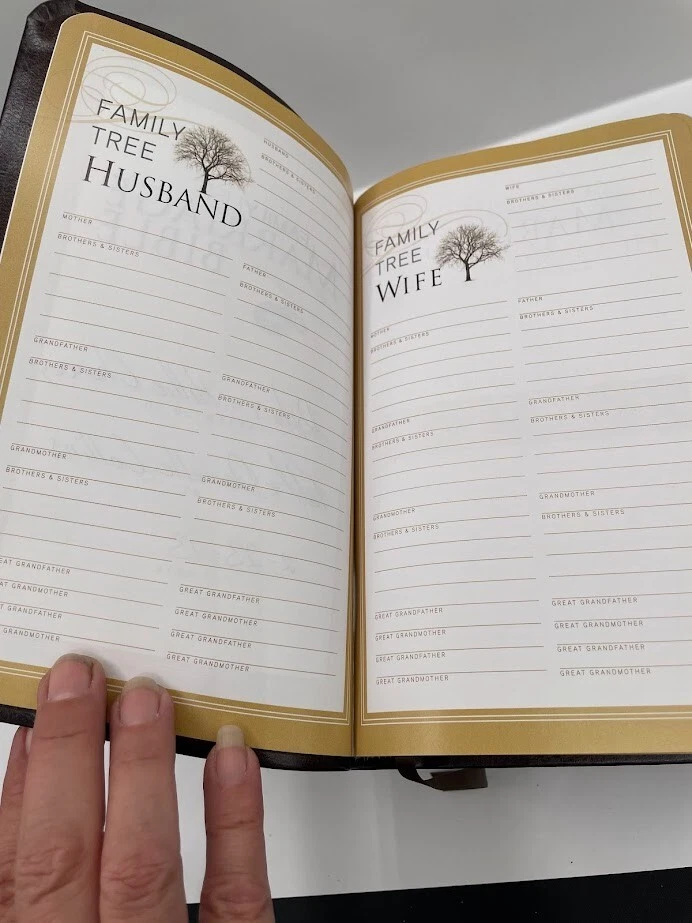 FAMILY
TREE
HUSBAND
HUSBAND
BROTHERS & SISTERS
MOTHER
BROTHERS & SISTERS
GRANDFATHER
BROTHERS & SISTERS
GRANDMOTHER
BROTHERS & SISTERS
GREAT GRANDFATHER
GREAT GRANDMOTHER
GREAT GRANDFATHER
GREAT GRANDMOTHER
FATHER
BROTHERS & SISTERS
GRANDFATHER
BROTHERS & SISTERS
GRANDMOTHER
BROTHERS & SISTERS
GREAT GRANDFATHER
GREAT GRANDMOTHER
GREAT GRANDFATHER
GREAT GRANDMOTHER
FAMILY
TREE
WIFE
WIFE
BROTHERS & SISTERS
MOTHER
BROTHERS & SISTERS
GRANDFATHER
BROTHERS & SISTERS
GRANDMOTHER
BROTHERS & SISTERS
GREAT GRANDFATHER
GREAT GRANDMOTHER
GREAT GRANDFATHER
GREAT GRANDMOTHER
FATHER
BROTHERS & SISTERS
GRANDFATHER
BROTHERS & SISTERS
GRANDMOTHER
BROTHERS & SISTERS
GREAT GRANDFATHER
GREAT GRANDMOTHER
GREAT GRANDFATHER
GREAT GRANDMOTHER